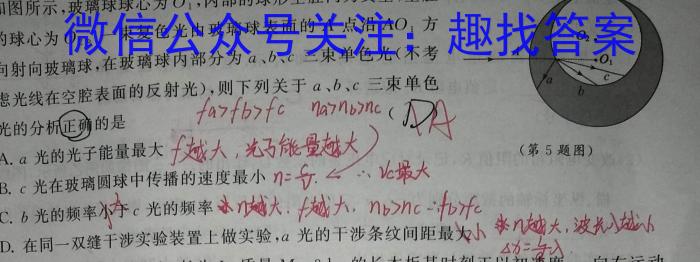 如图所示，玻璃球球心为O₁，内部的球形空腔
的球心为O 一束复色光由玻璃球表面的一点沿 O₁ 方
微信公众号关注：趣找答案
向射向玻璃球，在玻璃球内部分为 a、b、c 三束单色光（不考
虑光线在空腔表面的反射光），则下列关于 a、b、c 三束单色
光的分析正确的是
fa>fb>fc na>nb>nc （D） A
O₁
a b c
（第 5 题图）
A. a 光的光子能量最大 f越大，光子能量越大
B. c 光在玻璃圆球中传播的速度最小 n= ∴ Vc最大
C. b 光的频率小于 c 光的频率 n越大，f越大，nb>nc ∴fb>fc
D. 在同一双缝干涉实验装置上做实验，a 光的干涉条纹间距最大 小 n越大，波长入越小